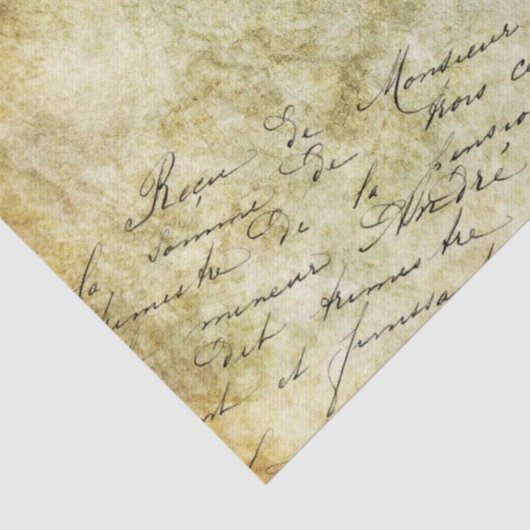 Reçu de Monsieur
la somme de trois c
trimestre de la pension
mineur André
dit trimestre
et finissa